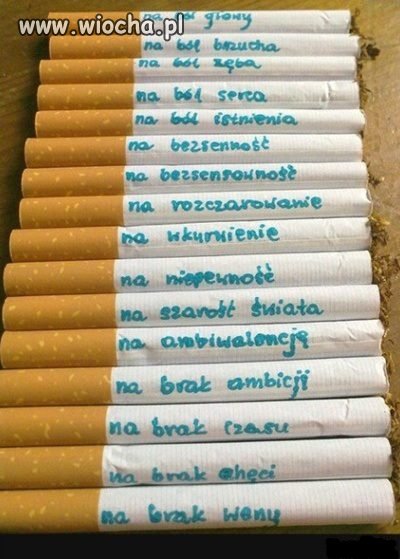 www.wiocha.pl
na ból głowy
na ból brzucha
na ból zęba
na ból serca
na ból istnienia
na bezsenność
na bezsensowność
na rozczarowanie
na wkurwienie
na niepewność
na szarość świata
na ambiwalencję
na brak ambicji
na brak czasu
na brak chęci
na brak weny